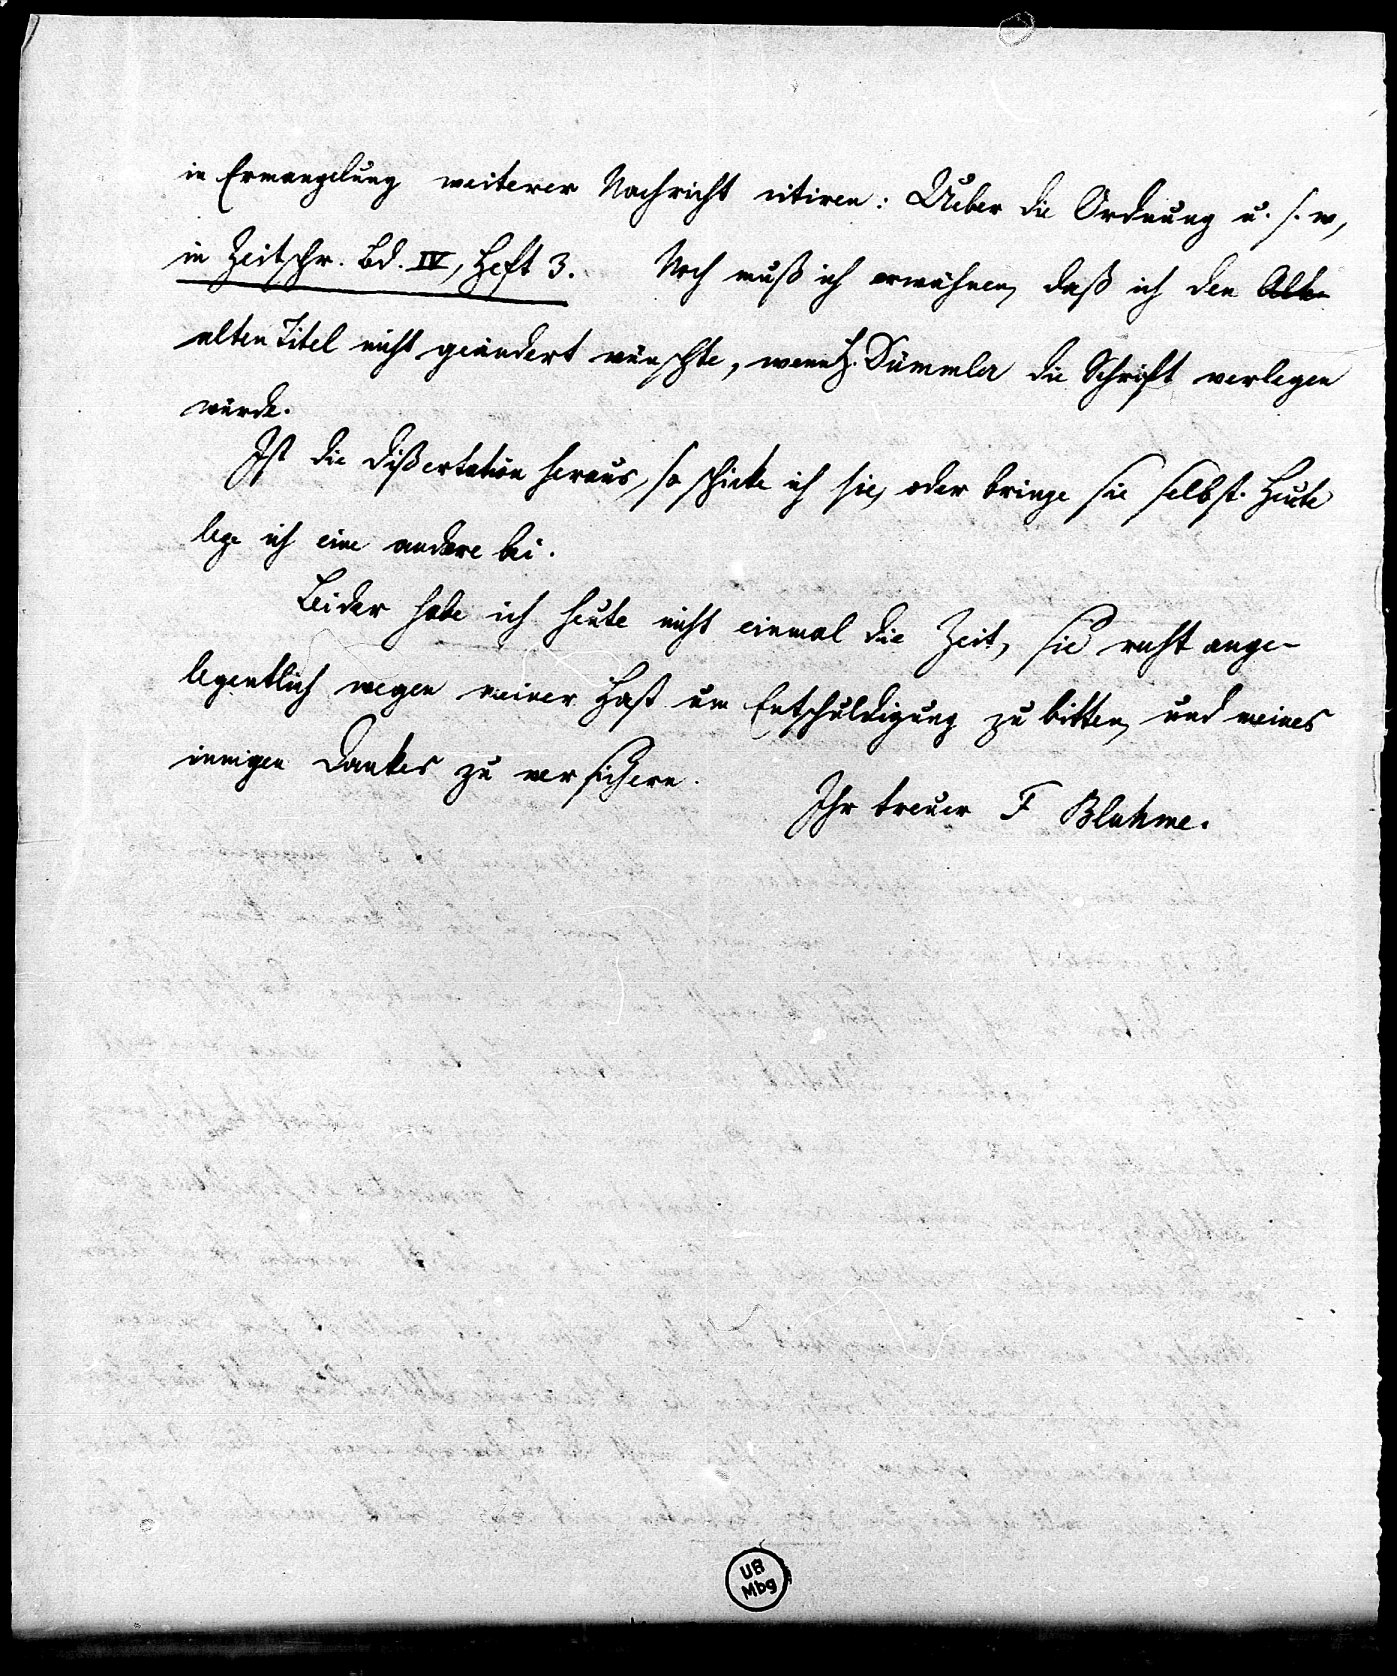 in Ermangelung weiterer Nachricht citiren: Ueber die Ordnung u. s. w,
in Zeitschr. Bd. IV, Heft 3. Noch muß ich erwähnen, daß ich den
alten Titel nicht geändert wünschte, wenn H. Dümmler die Schrift verlegen
würde.
Ist die Dißertation heraus, so schicke ich sie, oder bringe sie selbst. Heute
lege ich eine andere bei.
Leider habe ich heute nicht einmal die Zeit, Sie recht ange-
legentlich wegen meiner Hast um Entschuldigung zu bitten, und meines
innigen Dankes zu versichern.
Ihr treuer F Bluhme.
UB
Mbg